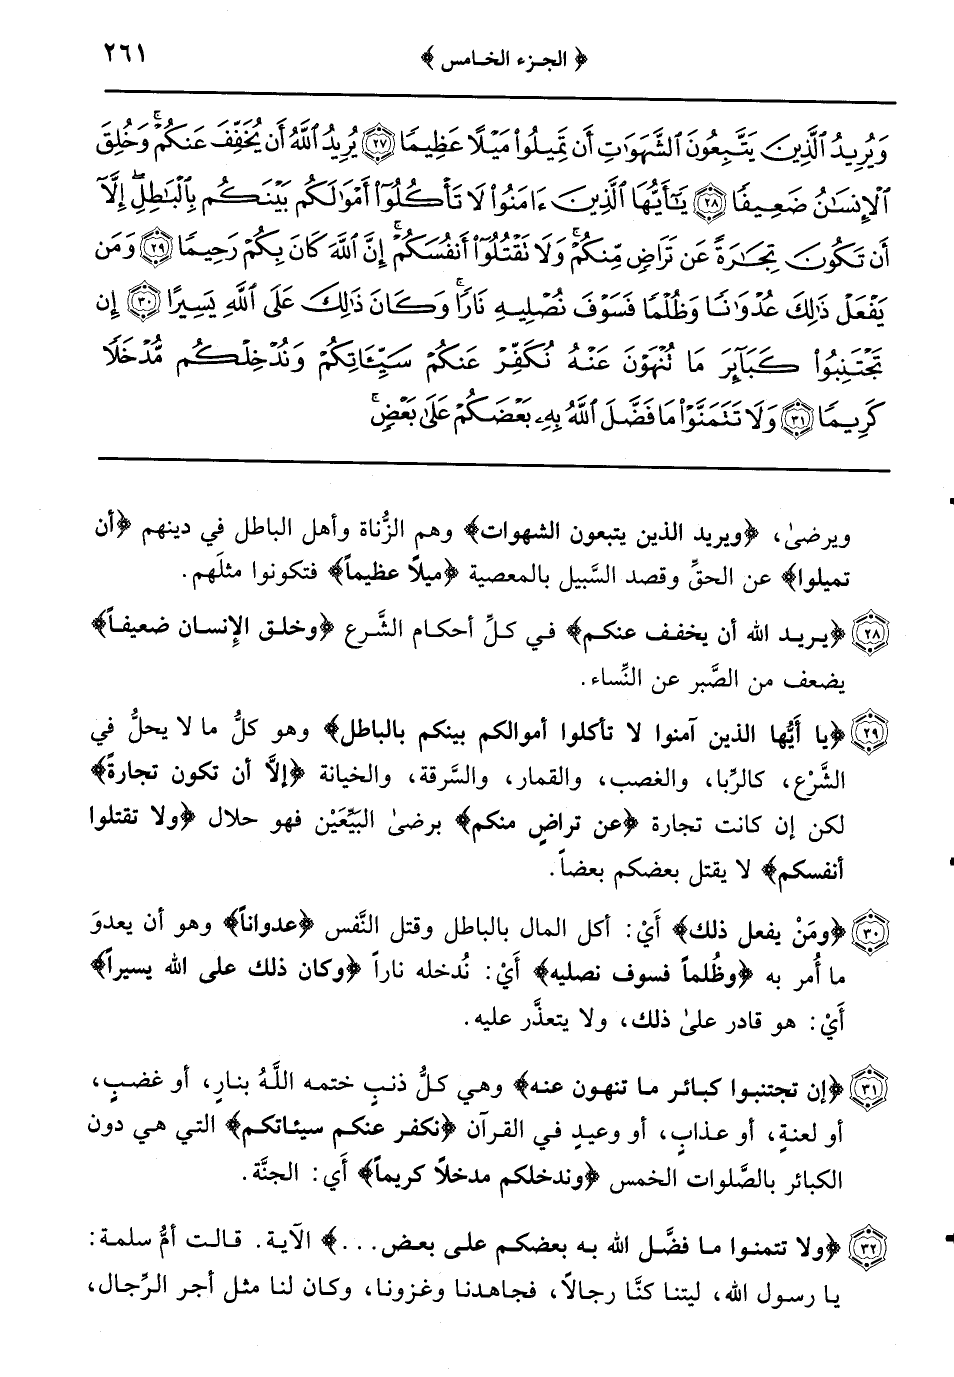 ﴿ الجزء الخامس ﴾
٢٦١
وَيُرِيدُ ٱلَّذِينَ يَتَّبِعُونَ ٱلشَّهَوَٰتِ أَن تَمِيلُوا۟ مَيْلًا عَظِيمًا ٢٧ يُرِيدُ ٱللَّهُ أَن يُخَفِّفَ عَنكُمْ ۚ وَخُلِقَ
ٱلْإِنسَٰنُ ضَعِيفًا ٢٨ يَٰٓأَيُّهَا ٱلَّذِينَ ءَامَنُوا۟ لَا تَأْكُلُوٓا۟ أَمْوَٰلَكُم بَيْنَكُم بِٱلْبَٰطِلِ إِلَّآ
أَن تَكُونَ تِجَٰرَةً عَن تَرَاضٍ مِّنكُمْ ۚ وَلَا تَقْتُلُوٓا۟ أَنفُسَكُمْ ۚ إِنَّ ٱللَّهَ كَانَ بِكُمْ رَحِيمًا ٢٩ وَمَن
يَفْعَلْ ذَٰلِكَ عُدْوَٰنًا وَظُلْمًا فَسَوْفَ نُصْلِيهِ نَارًا ۚ وَكَانَ ذَٰلِكَ عَلَى ٱللَّهِ يَسِيرًا ٣٠ إِن
تَجْتَنِبُوا۟ كَبَآئِرَ مَا تُنْهَوْنَ عَنْهُ نُكَفِّرْ عَنكُمْ سَيِّـَٔاتِكُمْ وَنُدْخِلْكُم مُّدْخَلًا
كَرِيمًا ٣١ وَلَا تَتَمَنَّوْا۟ مَا فَضَّلَ ٱللَّهُ بِهِۦ بَعْضَكُمْ عَلَىٰ بَعْضٍ ۚ
ويرضىٰ، ﴿ويريد الذين يتبعون الشهوات﴾ وهم الزُّناة وأهل الباطل في دينهم ﴿أن
تميلوا﴾ عن الحقِّ وقصد السَّبيل بالمعصية ﴿ميلاً عظيماً﴾ فتكونوا مثلَهم.
٢٨ ﴿يريد الله أن يخفف عنكم﴾ في كلِّ أحكام الشَّرع ﴿وخلق الإِنسان ضعيفاً﴾
يضعف من الصَّبر عن النِّساء.
٢٩ ﴿يا أيُّها الذين آمنوا لا تأكلوا أموالكم بينكم بالباطل﴾ وهو كلُّ ما لا يحلُّ في
الشَّرْع، كالرِّبا، والغصب، والقمار، والسَّرقة، والخيانة ﴿إلاَّ أن تكون تجارةً﴾
لكن إن كانت تجارة ﴿عن تراضٍ منكم﴾ برضىٰ البَيِّعَيْن فهو حلال ﴿ولا تقتلوا
أنفسكم﴾ لا يقتل بعضكم بعضاً.
٣٠ ﴿ومَنْ يفعل ذلك﴾ أَيْ: أكل المال بالباطل وقتل النَّفس ﴿عدواناً﴾ وهو أن يعدوَ
ما أُمر به ﴿وظُلماً فسوف نصليه﴾ أَيْ: نُدخله ناراً ﴿وكان ذلك على الله يسيراً﴾
أَيْ: هو قادر علىٰ ذلك، ولا يتعذَّر عليه.
٣١ ﴿إن تجتنبوا كبائر ما تنهون عنه﴾ وهي كلُّ ذنبٍ ختمه اللَّهُ بنارٍ، أو غضبٍ،
أو لعنةٍ، أو عذابٍ، أو وعيدٍ في القرآن ﴿نكفر عنكم سيئاتكم﴾ التي هي دون
الكبائر بالصَّلوات الخمس ﴿وندخلكم مدخلاً كريماً﴾ أَي: الجنَّة.
٣٢ ﴿ولا تتمنوا ما فضَّل الله به بعضكم على بعض...﴾ الآية. قالت أمُّ سلمة:
يا رسول الله، ليتنا كنَّا رجالاً، فجاهدنا وغزونا، وكان لنا مثل أجر الرِّجال،